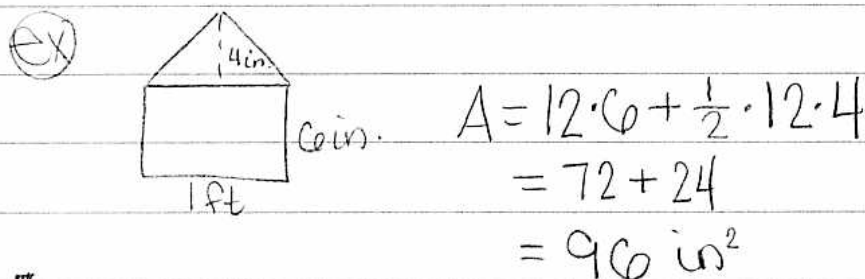 ex
4in.
6in.
1ft
A = 12·6 + 1/2 · 12·4
= 72 + 24
= 96 in²